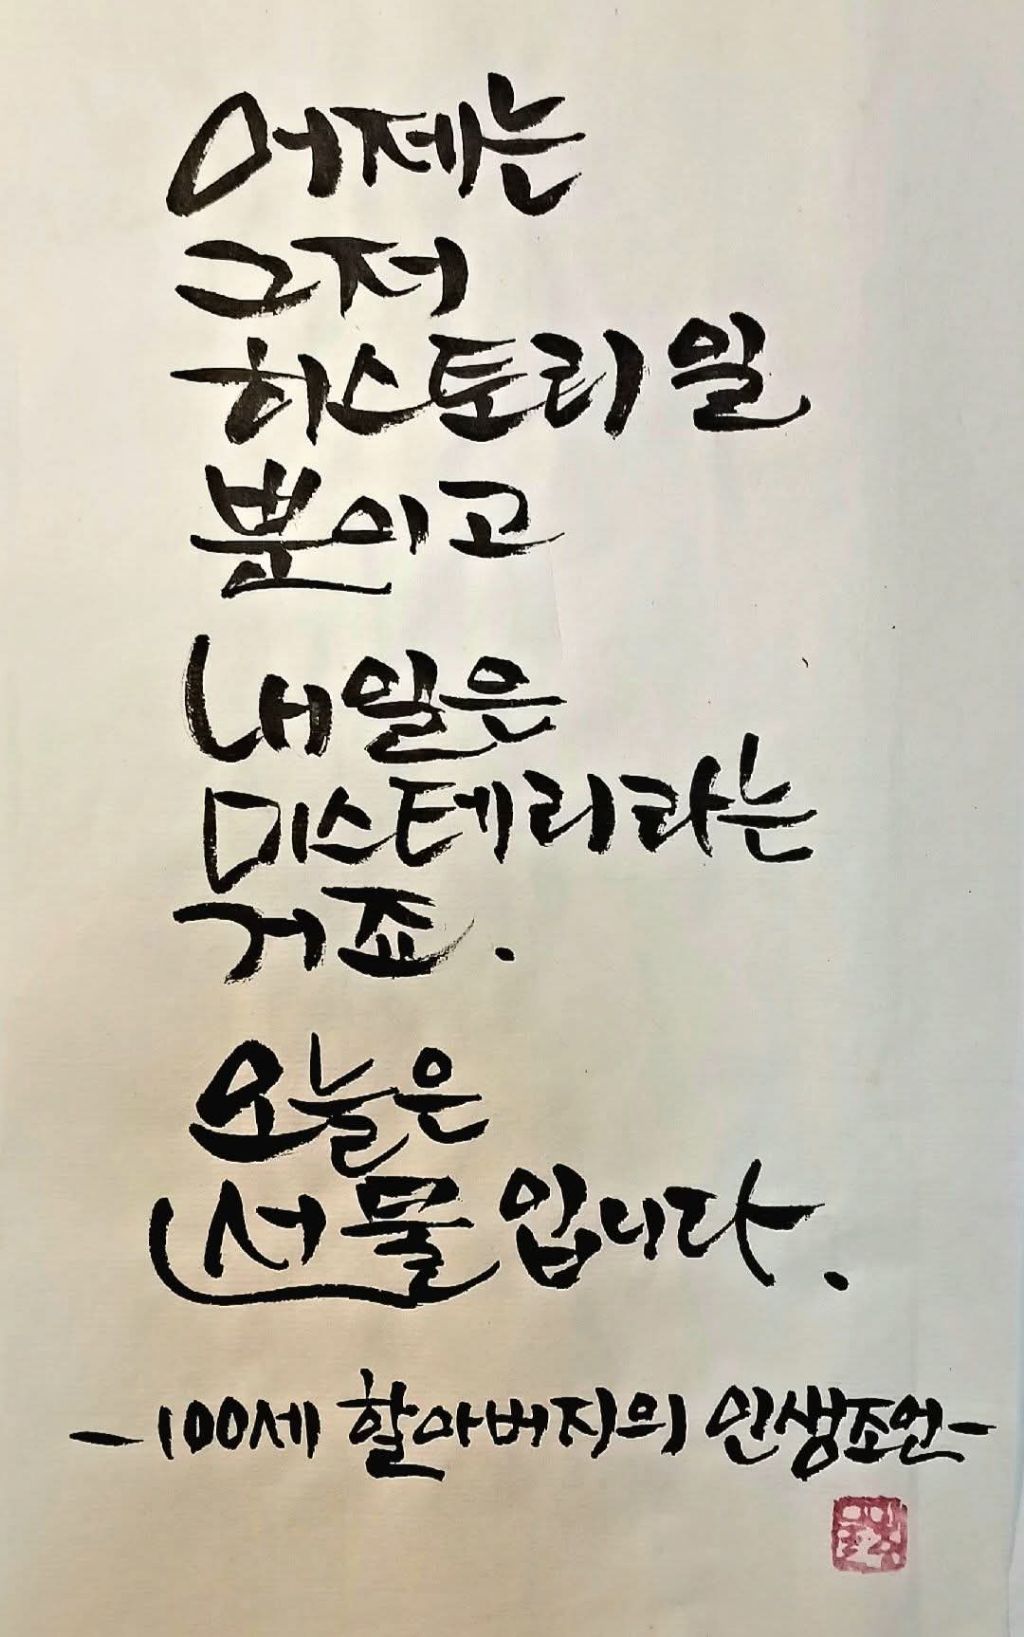 어제는
그저
히스토리 일
뿐이고
내일은
미스테리라는
거죠.
오늘은
선물 입니다.
- 100세 할아버지의 인생조언 -